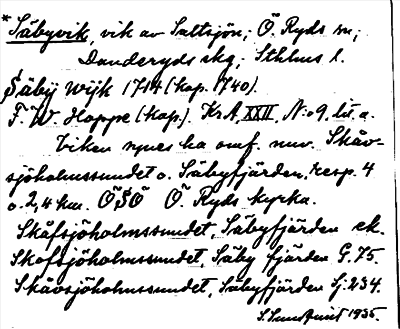 *Säbyvik, vik av Saltsjön; Ö. Ryds sn;
Danderyds skg; Sthlms l.
Säbÿ Wijk 1714 (kop. 1740).
F. W. Hoppe (kop.). KrA XXII, N:o 9. lit. a.
Viken synes ha omf. nuv. Skåv-
sjöholmssundet o. Säbyfjärden, resp. 4
o. 2,4 km. ÖSÖ Ö. Ryds kyrka.
Skåfsjöholmssundet, Säbyfjärden ek.
Skofsjöholmssundet, Säby fjärden G. 75.
Skåvsjöholmssundet, Säbyfjärden Sj: 234.
S. Sundqvist 1935.